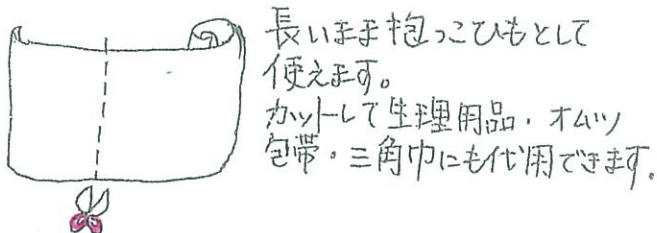 長いまま抱っこひもとして
使えます。
カットして生理用品・オムツ
包帯・三角巾にも代用できます。